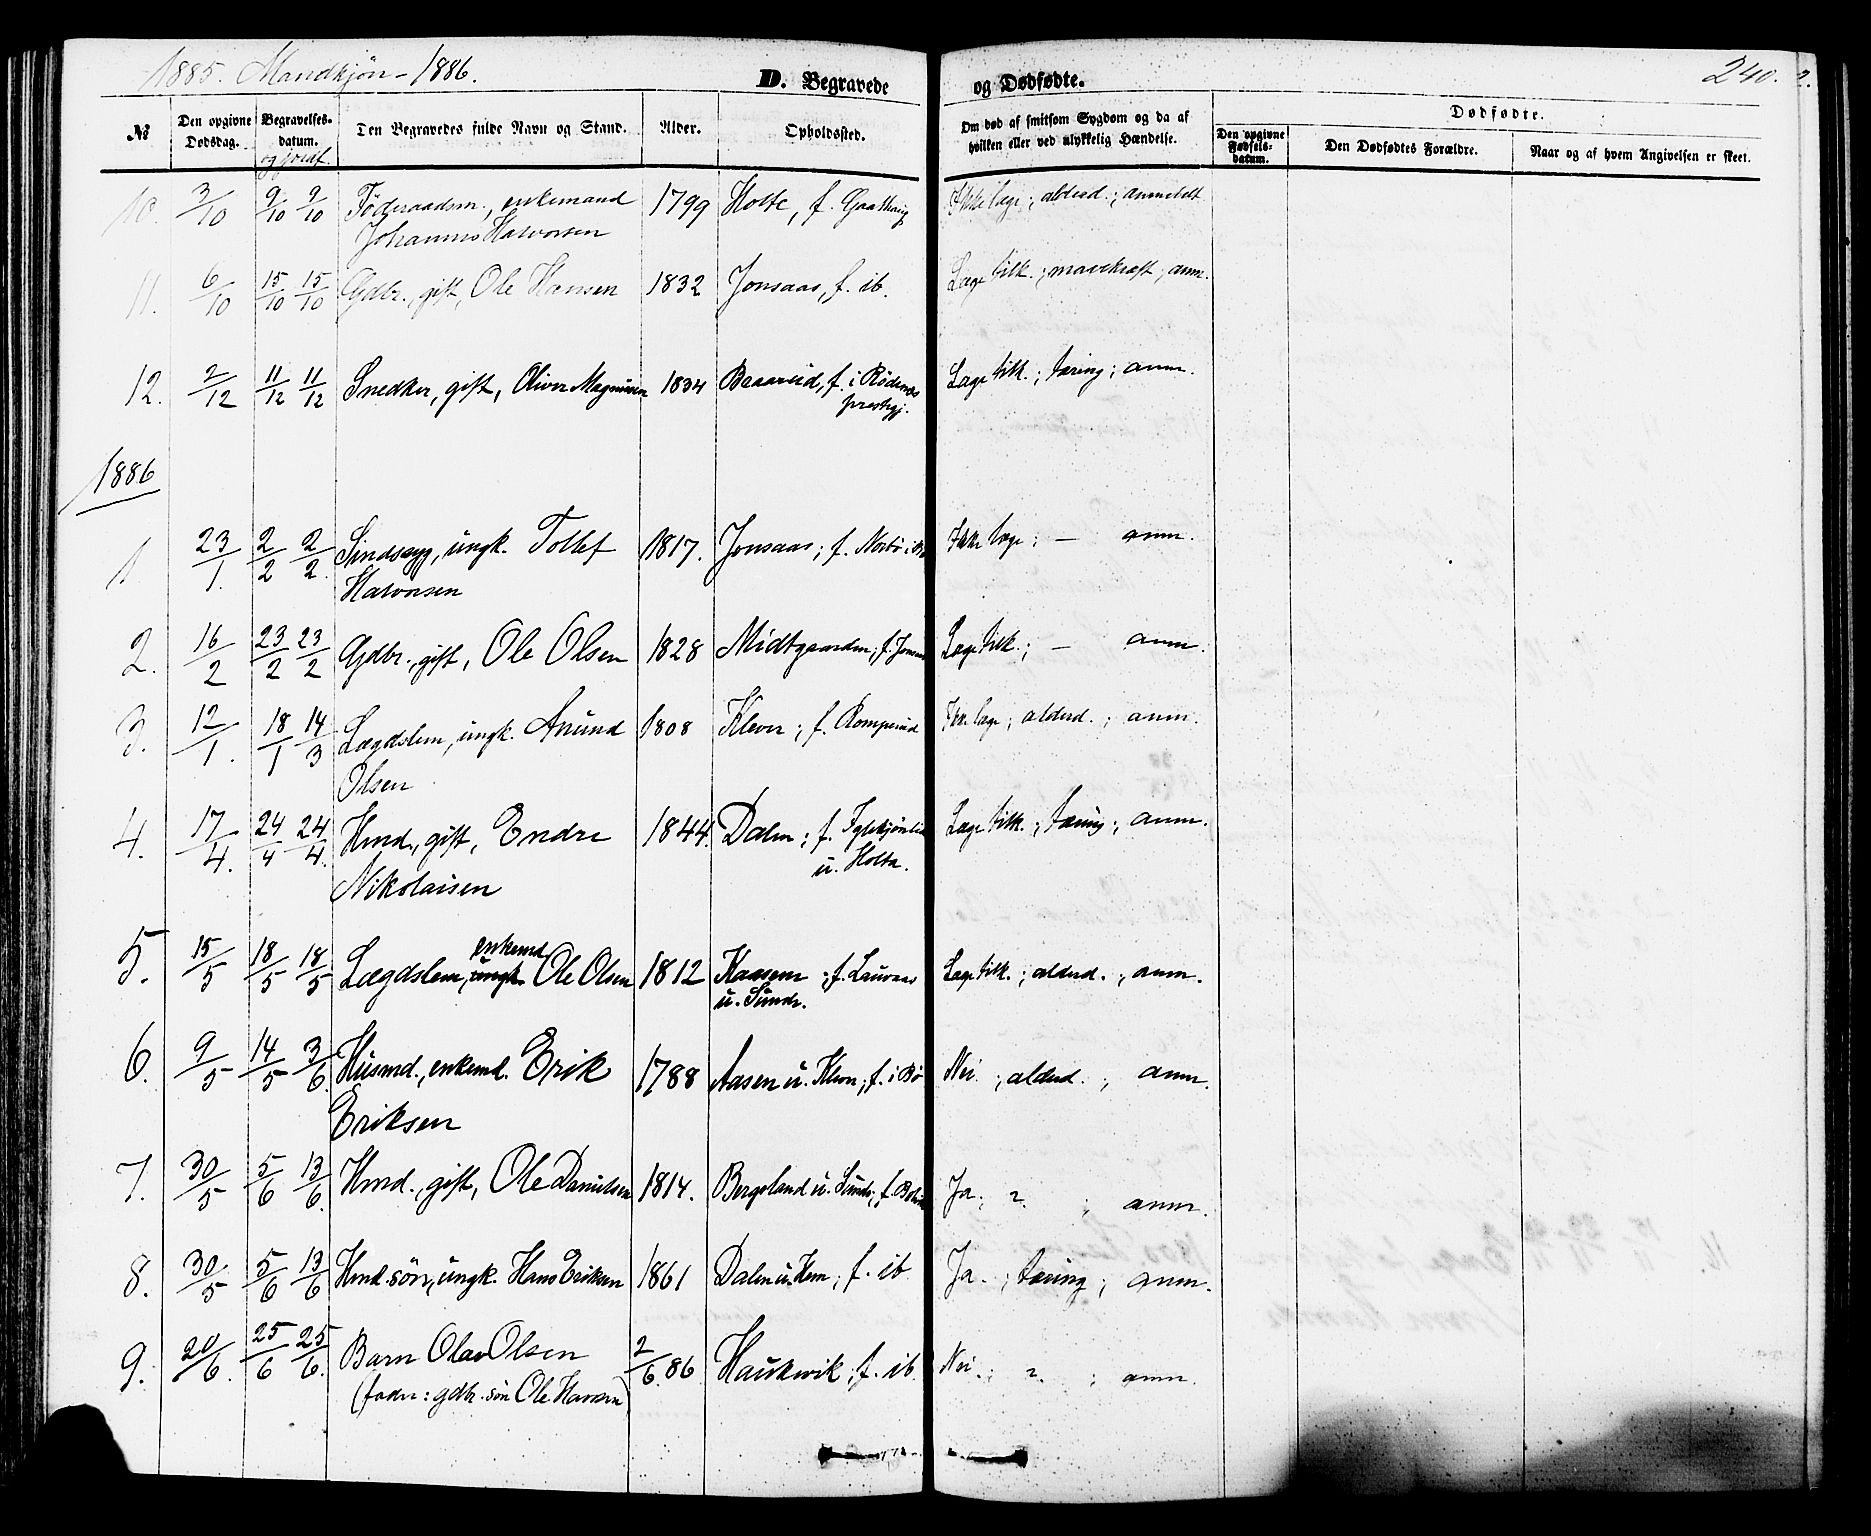 1885. Mandkjøn - 1886.
D. Begravede og Dødfødte.
240.
No
Den opgivne Dødsdag.
Begravelses-datum.
og jordf.
Den Begravedes fulde Navn og Stand.
Alder.
Opholdssted.
Om død af smitsom Sygdom og da af hvilken eller ved ulykkelig Hændelse.
Dødfødte.
Den opgivne Fødsels-datum.
Den Dødfødtes Forældre.
Naar og af hvem Angivelsen er skeet.
10. 3/10 9/10 9/10 Føderaadsm., enkemand 1799 Holte, f. Ikke læge; alderd.; anmeldt
Johannes Halvorsen
11. 6/10 15/10 15/10 Gdbr., gift, Ole Hansen 1832 Jonsaas, f. ib. Læge tilk.; mavekræft; anm.
12. 2/12 11/12 11/12 Snedker, gift, Oliver Magnusen 1834 f. i Rødenæs Læge tilk.; tæring; anm.
prestegj.
1886
1 23/1. 2/2 2/2. Sindssyg, ungk. Tollef 1817. Jonsaas; f. Ikke læge; — anm.
Halvorsen
2. 16/2 23/2 23/2 Gdbr., gift, Ole Olsen 1828 Midtgaarden; f. Læge tilk.; — anm.
3. 12/1. 18/1 14/3 Lægdslem, ungk. Anund 1808 Klever; f. Romperud Ikke læge; alderd.; anm.
Olsen
4. 17/4. 24/4 24/4. Hmd., gift, Endre 1844. Dalen; f. Læge tilk.; tæring; anm.
Nikolaisen u. Holta.
enkemd
5. 15/5 18/5 18/5 Lægdslem, ungk. Ole Olsen 1812 Kaasene; f. Lauvaas Læge tilk.; alderd.; anm.
u. Sunde.
6. 9/5 14/5 3/6. Husmd., enkemd. Erik 1788 Aasen u. Kleven; f. i Bø Nei; alderd.; anm.
Eriksen
7. 30/5 5/6 13/6. Hmd., gift, Ole Danielsen 1814. Bergsland u. Sunde; f. Ja; ?; anm.
8. 30/5 5/6 13/6 Hmd.søn, ungk. Hans Eriksen 1861 Dalen u. Hem; f. ib Ja; tæring; anm.
9. 20/6. 25/6 25/6. Barn Olav Olsen 2/6.86 Haukvik; f. ib. Nei; ?; anm.
(fader: gdbr.søn Ole Hansen)